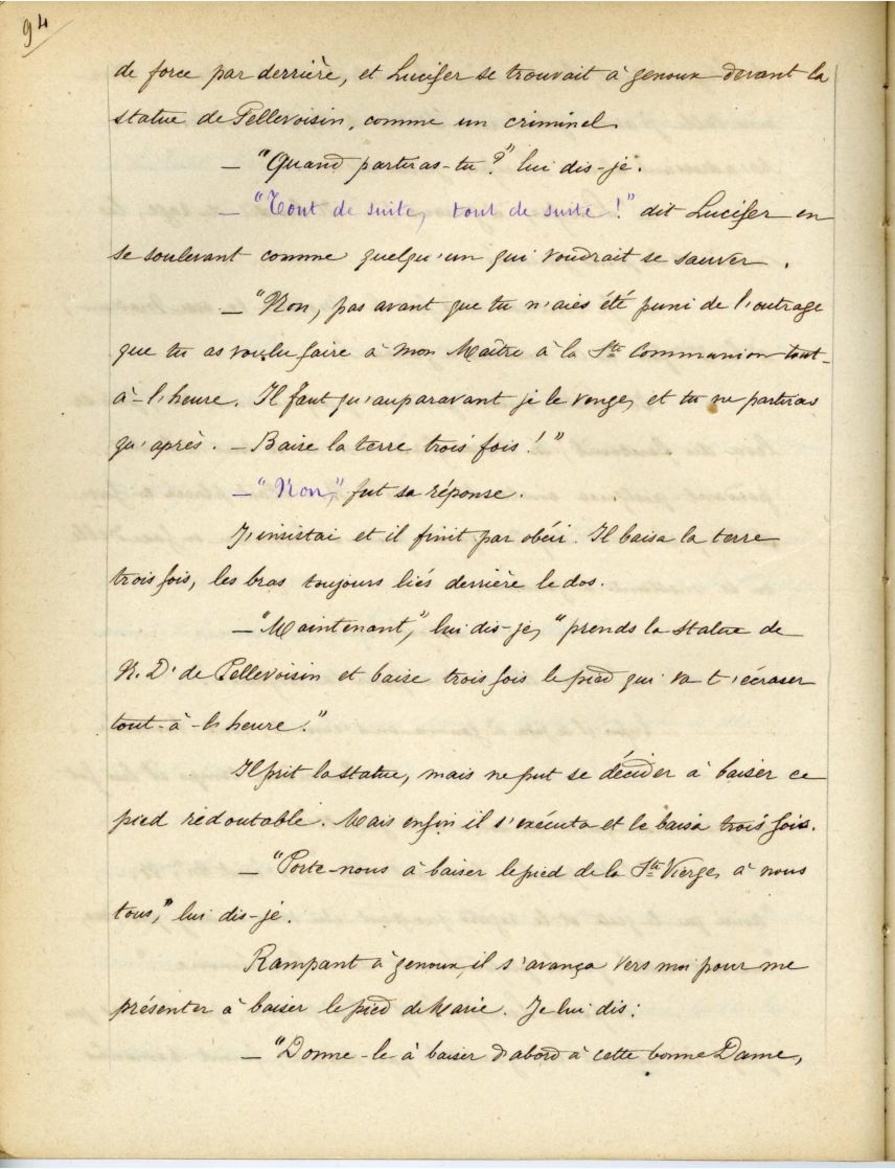 94
de force par derrière, et Lucifer se trouvait à genoux devant la
statue de Pellevoisin, comme un criminel.
— "Quand partiras-tu?" lui dis-je.
— "Tout de suite, tout de suite!" dit Lucifer en
se soulevant comme quelqu'un qui voudrait se sauver.
— "Non, pas avant que tu n'aies été puni de l'outrage
que tu as voulu faire à mon Maître à la Ste Communion tout-
à-l'heure. Il faut qu'auparavant je le venge, et tu ne partiras
qu'après. — Baise la terre trois fois!"
— "Non," fut sa réponse.
J'insistai et il finit par obéir. Il baisa la terre
trois fois, les bras toujours liés derrière le dos.
— "Maintenant," lui dis-je, "prends la statue de
N. D. de Pellevoisin et baise trois fois le pied qui va t'écraser
tout-à-l'heure."
Il prit la statue, mais ne put se décider à baiser ce
pied redoutable. Mais enfin il s'exécuta et le baisa trois fois.
— "Porte-nous à baiser le pied de la Ste Vierge, à nous
tous," lui dis-je.
Rampant à genoux, il s'avança vers moi pour me
présenter à baiser le pied de Marie. Je lui dis:
— "Donne-le à baiser d'abord à cette bonne Dame,